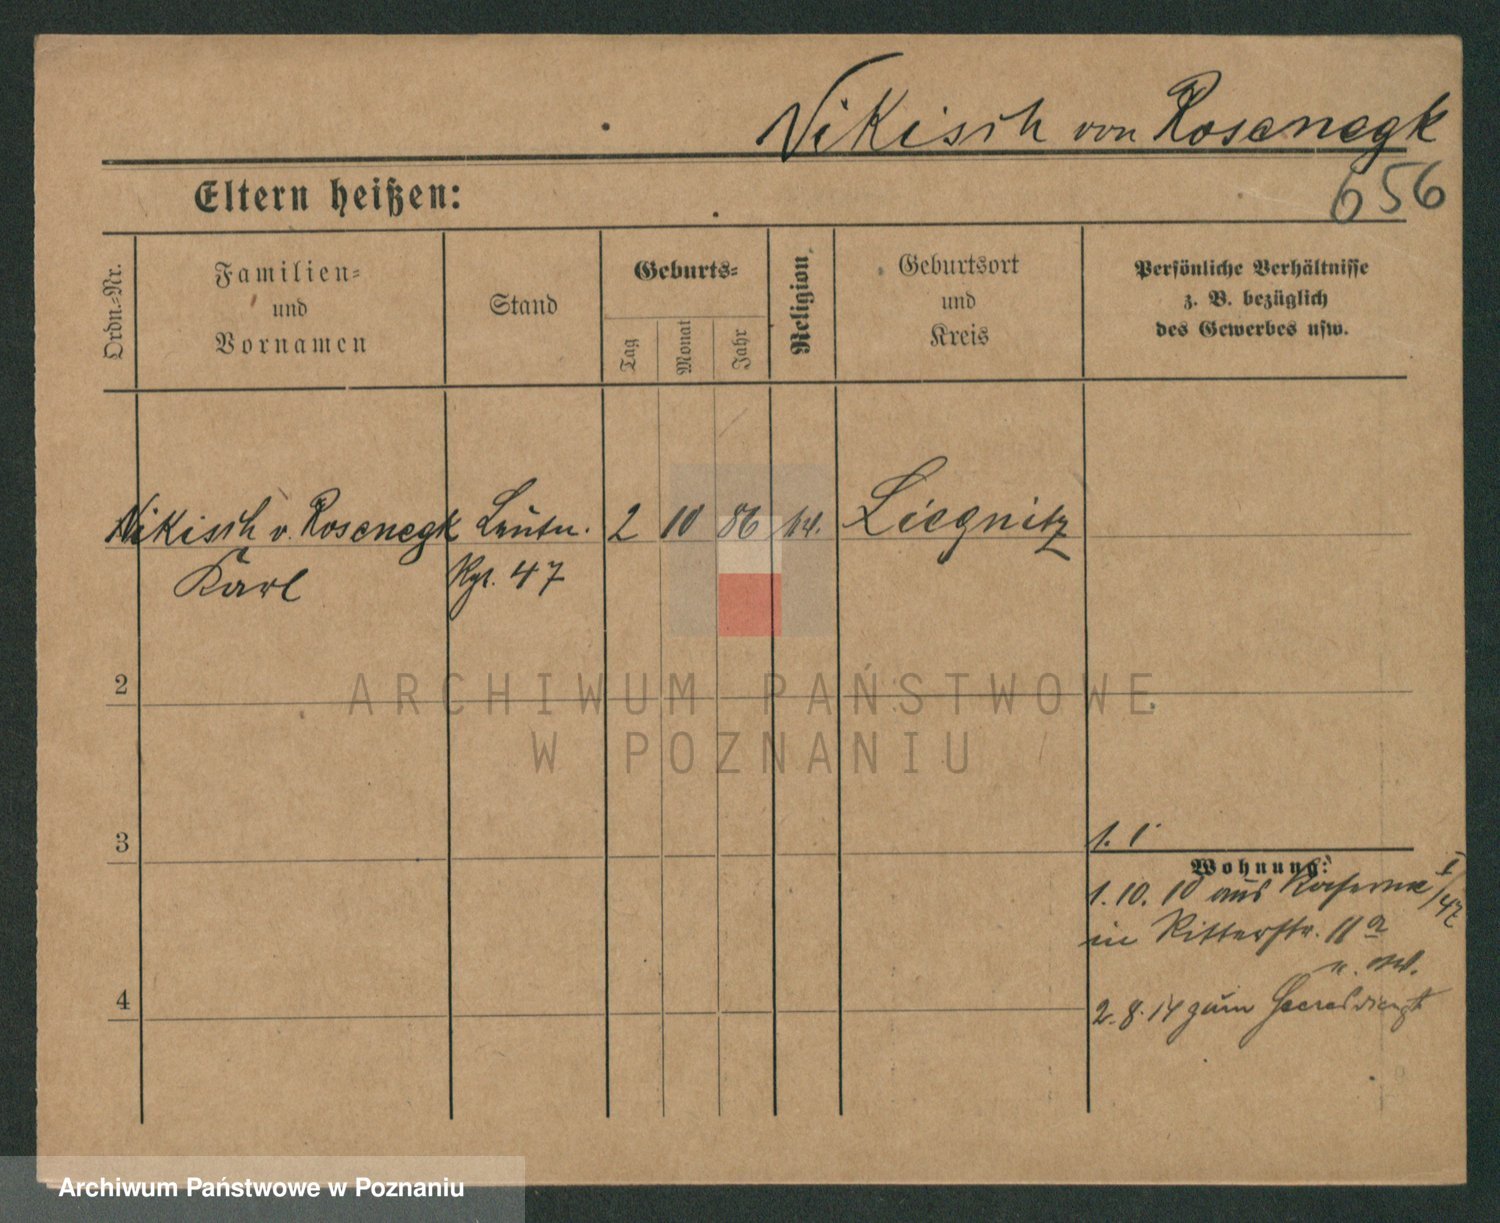 Nikisch von Rosenegk
656
Eltern heißen:
Ordn.=Nr.
Familien=
und
Vornamen
Stand
Geburts=
Tag
Monat
Jahr
Religion.
Geburtsort
und
Kreis
Persönliche Verhältnisse
z. B. bezüglich
des Gewerbes usw.
Nikisch v. Rosenegk Leutn. 2 10 86 Liegnitz
Karl Rgt. 47
2
3
4
1. 1
Wohnung:
1. 10. 10 aus Kaserne I/47
in Ritterstr. 11 a
2. 8. 14 zum Heeresdienst
ARCHIWUM PAŃSTWOWE
W POZNANIU
Archiwum Państwowe w Poznaniu